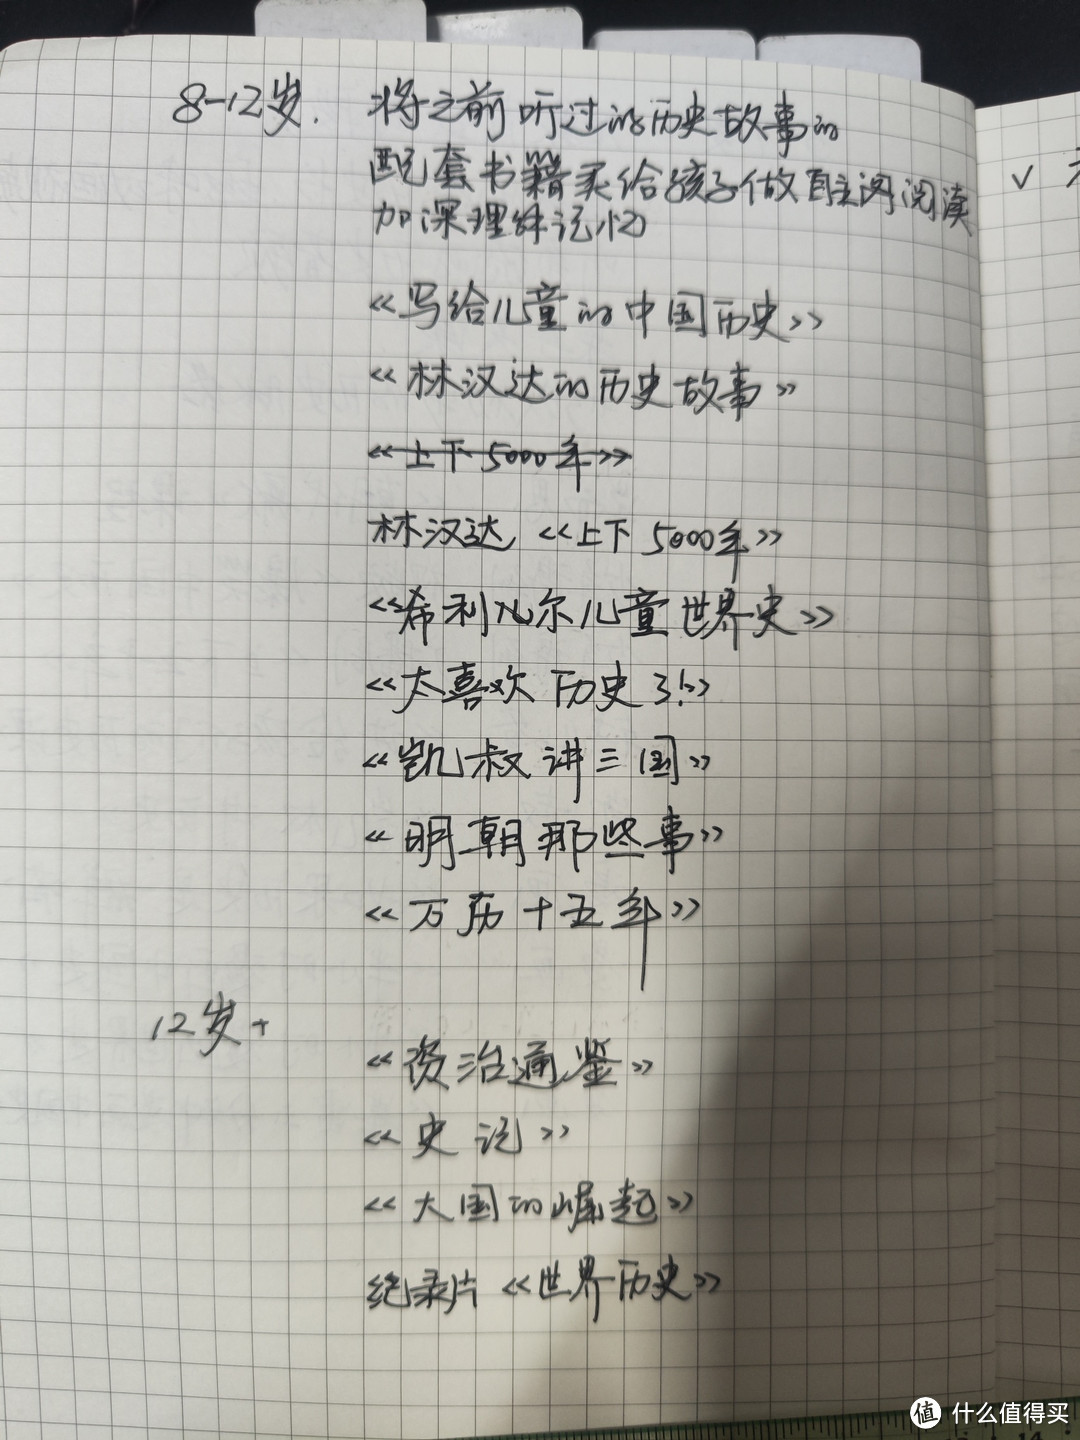 8-12岁. 将之前听过的历史故事的
配套书籍买给孩子做自主阅读
加深理解记忆
《写给儿童的中国历史》
《林汉达的历史故事》
《上下5000年》
林汉达《上下5000年》
《希利尔儿童世界史》
《太喜欢历史了!》
《凯叔讲三国》
《明朝那些事》
《万历十五年》
12岁+
《资治通鉴》
《史记》
《大国的崛起》
纪录片《世界历史》
值 什么值得买